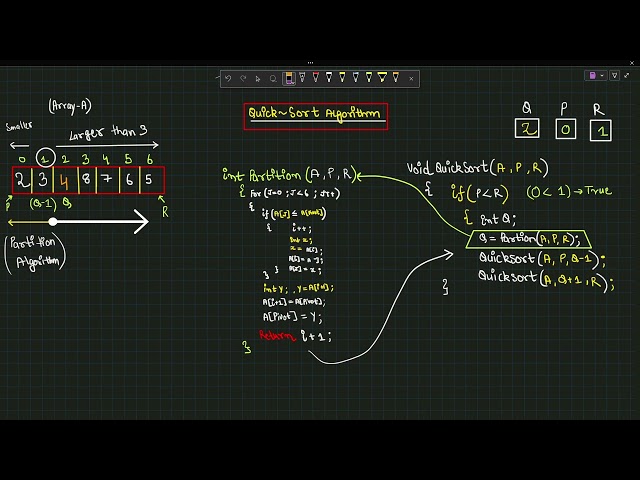 Quick~Sort Algorithm
(Array-A)
Smaller
Larger than 3
0 1 2 3 4 5 6
2 3 4 8 7 6 5
P (Q-1) Q R
(Partition Algorithm)
int Partition (A, P, R)
{ for(J=0 ; J<6 ; J++)
{
if(A[J] ≤ A[Pivot])
{ i++;
int x;
x = A[i];
A[i] = A[J];
A[J] = x;
} }
int Y; , Y=A[i+1];
A[i+1]=A[Pivot];
A[Pivot] = Y;
Return i+1;
}
Q P R
2 0 1
void QuickSort(A, P, R)
{ if(P<R) (0<1)→True
{ int Q;
Q = Partion(A, P, R);
Quicksort(A, P, Q-1);
Quicksort(A, Q+1, R);
}